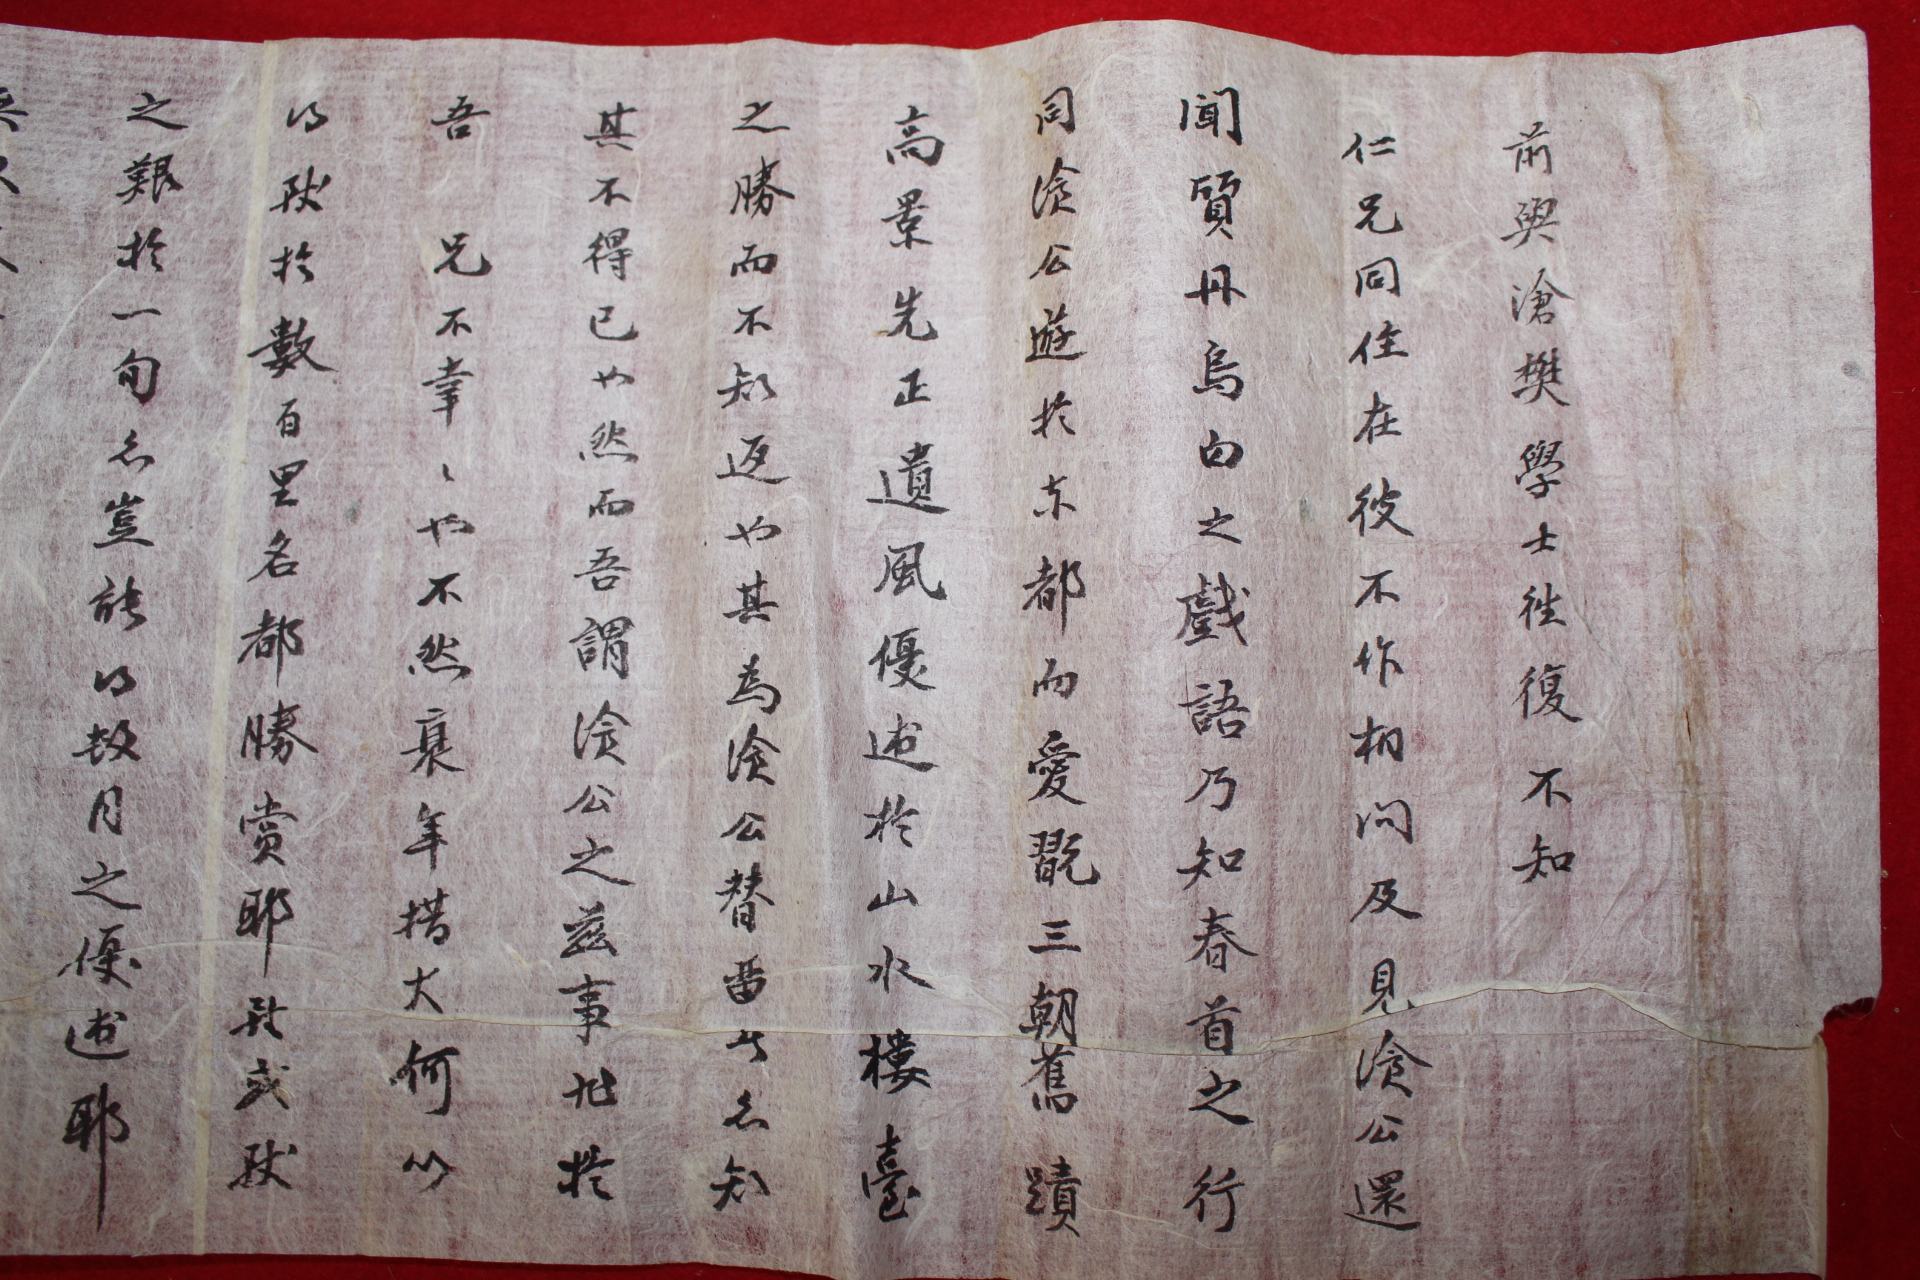 前與滄樊學士徃復不知
仁兄同住在彼不作相問及見滄公還
聞質丹烏白之戲語乃知春首之行
同滄公遊於東都而愛翫三朝舊蹟
高景先正遺風優遊於山水樓臺
之勝而不知返也其為滄公替留者名知
其不得已也然而吾謂滄公之茲事非於
吾兄不幸〻也不然衰年措大何以
得 於數百里名都勝賞耶 或
之艱於一旬名豈能得數月之優遊耶